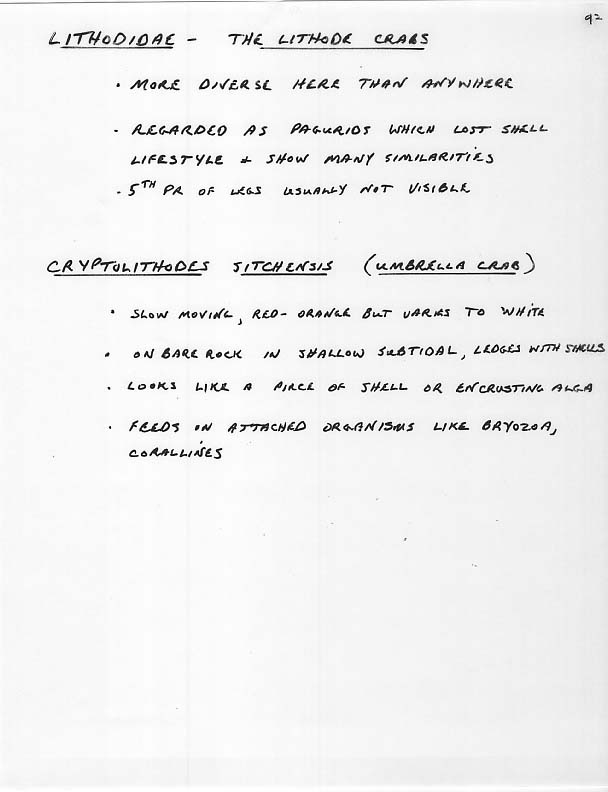 92
LITHODIDAE - THE LITHODE CRABS
• MORE DIVERSE HERE THAN ANYWHERE
• REGARDED AS PAGURIDS WHICH LOST SHELL
LIFESTYLE & SHOW MANY SIMILARITIES
• 5TH PR OF LEGS USUALLY NOT VISIBLE
CRYPTOLITHODES SITCHENSIS (UMBRELLA CRAB)
• SLOW MOVING, RED-ORANGE BUT VARIES TO WHITE
• ON BARE ROCK IN SHALLOW SUBTIDAL, LEDGES WITH SHELLS
• LOOKS LIKE A PIECE OF SHELL OR ENCRUSTING ALGA
• FEEDS ON ATTACHED ORGANISMS LIKE BRYOZOA,
CORALLINES